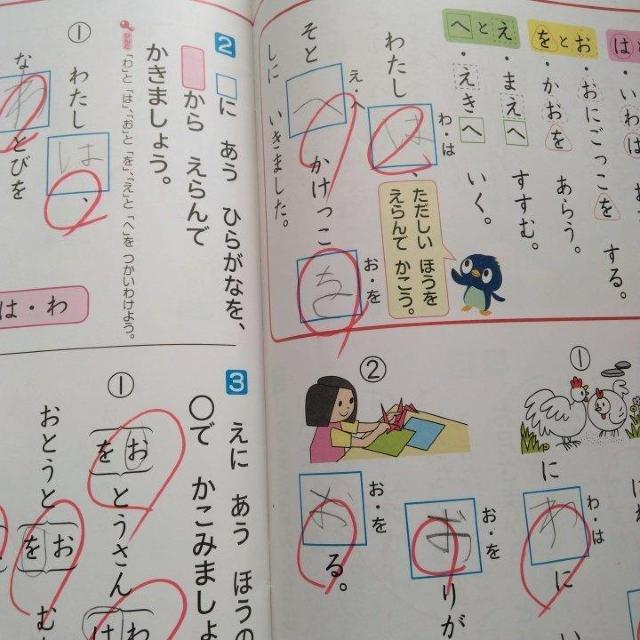 は
へとえ
をとお
・えきへ いく。
・まえへ すすむ。
・かおを あらう。
・おにごっこを する。
・いわは
わたし は、
わ・は
そと へ かけっこ を
え・へ
お・を
しに いきました。
ただしい ほうを
えらんで かこう。
①
に わに
わ・は
②
おりが
お・を
おる。
お・を
2 □に あう ひらがなを、
から えらんで
かきましょう。
「わ」と「は」、「お」と「を」、「え」と「へ」を つかいわけよう。
① わたし は、
なわとびを
は・わ
3 えに あう ほうの
○で かこみましょ
①
おを とうさん
はわ
おとうと
おを む